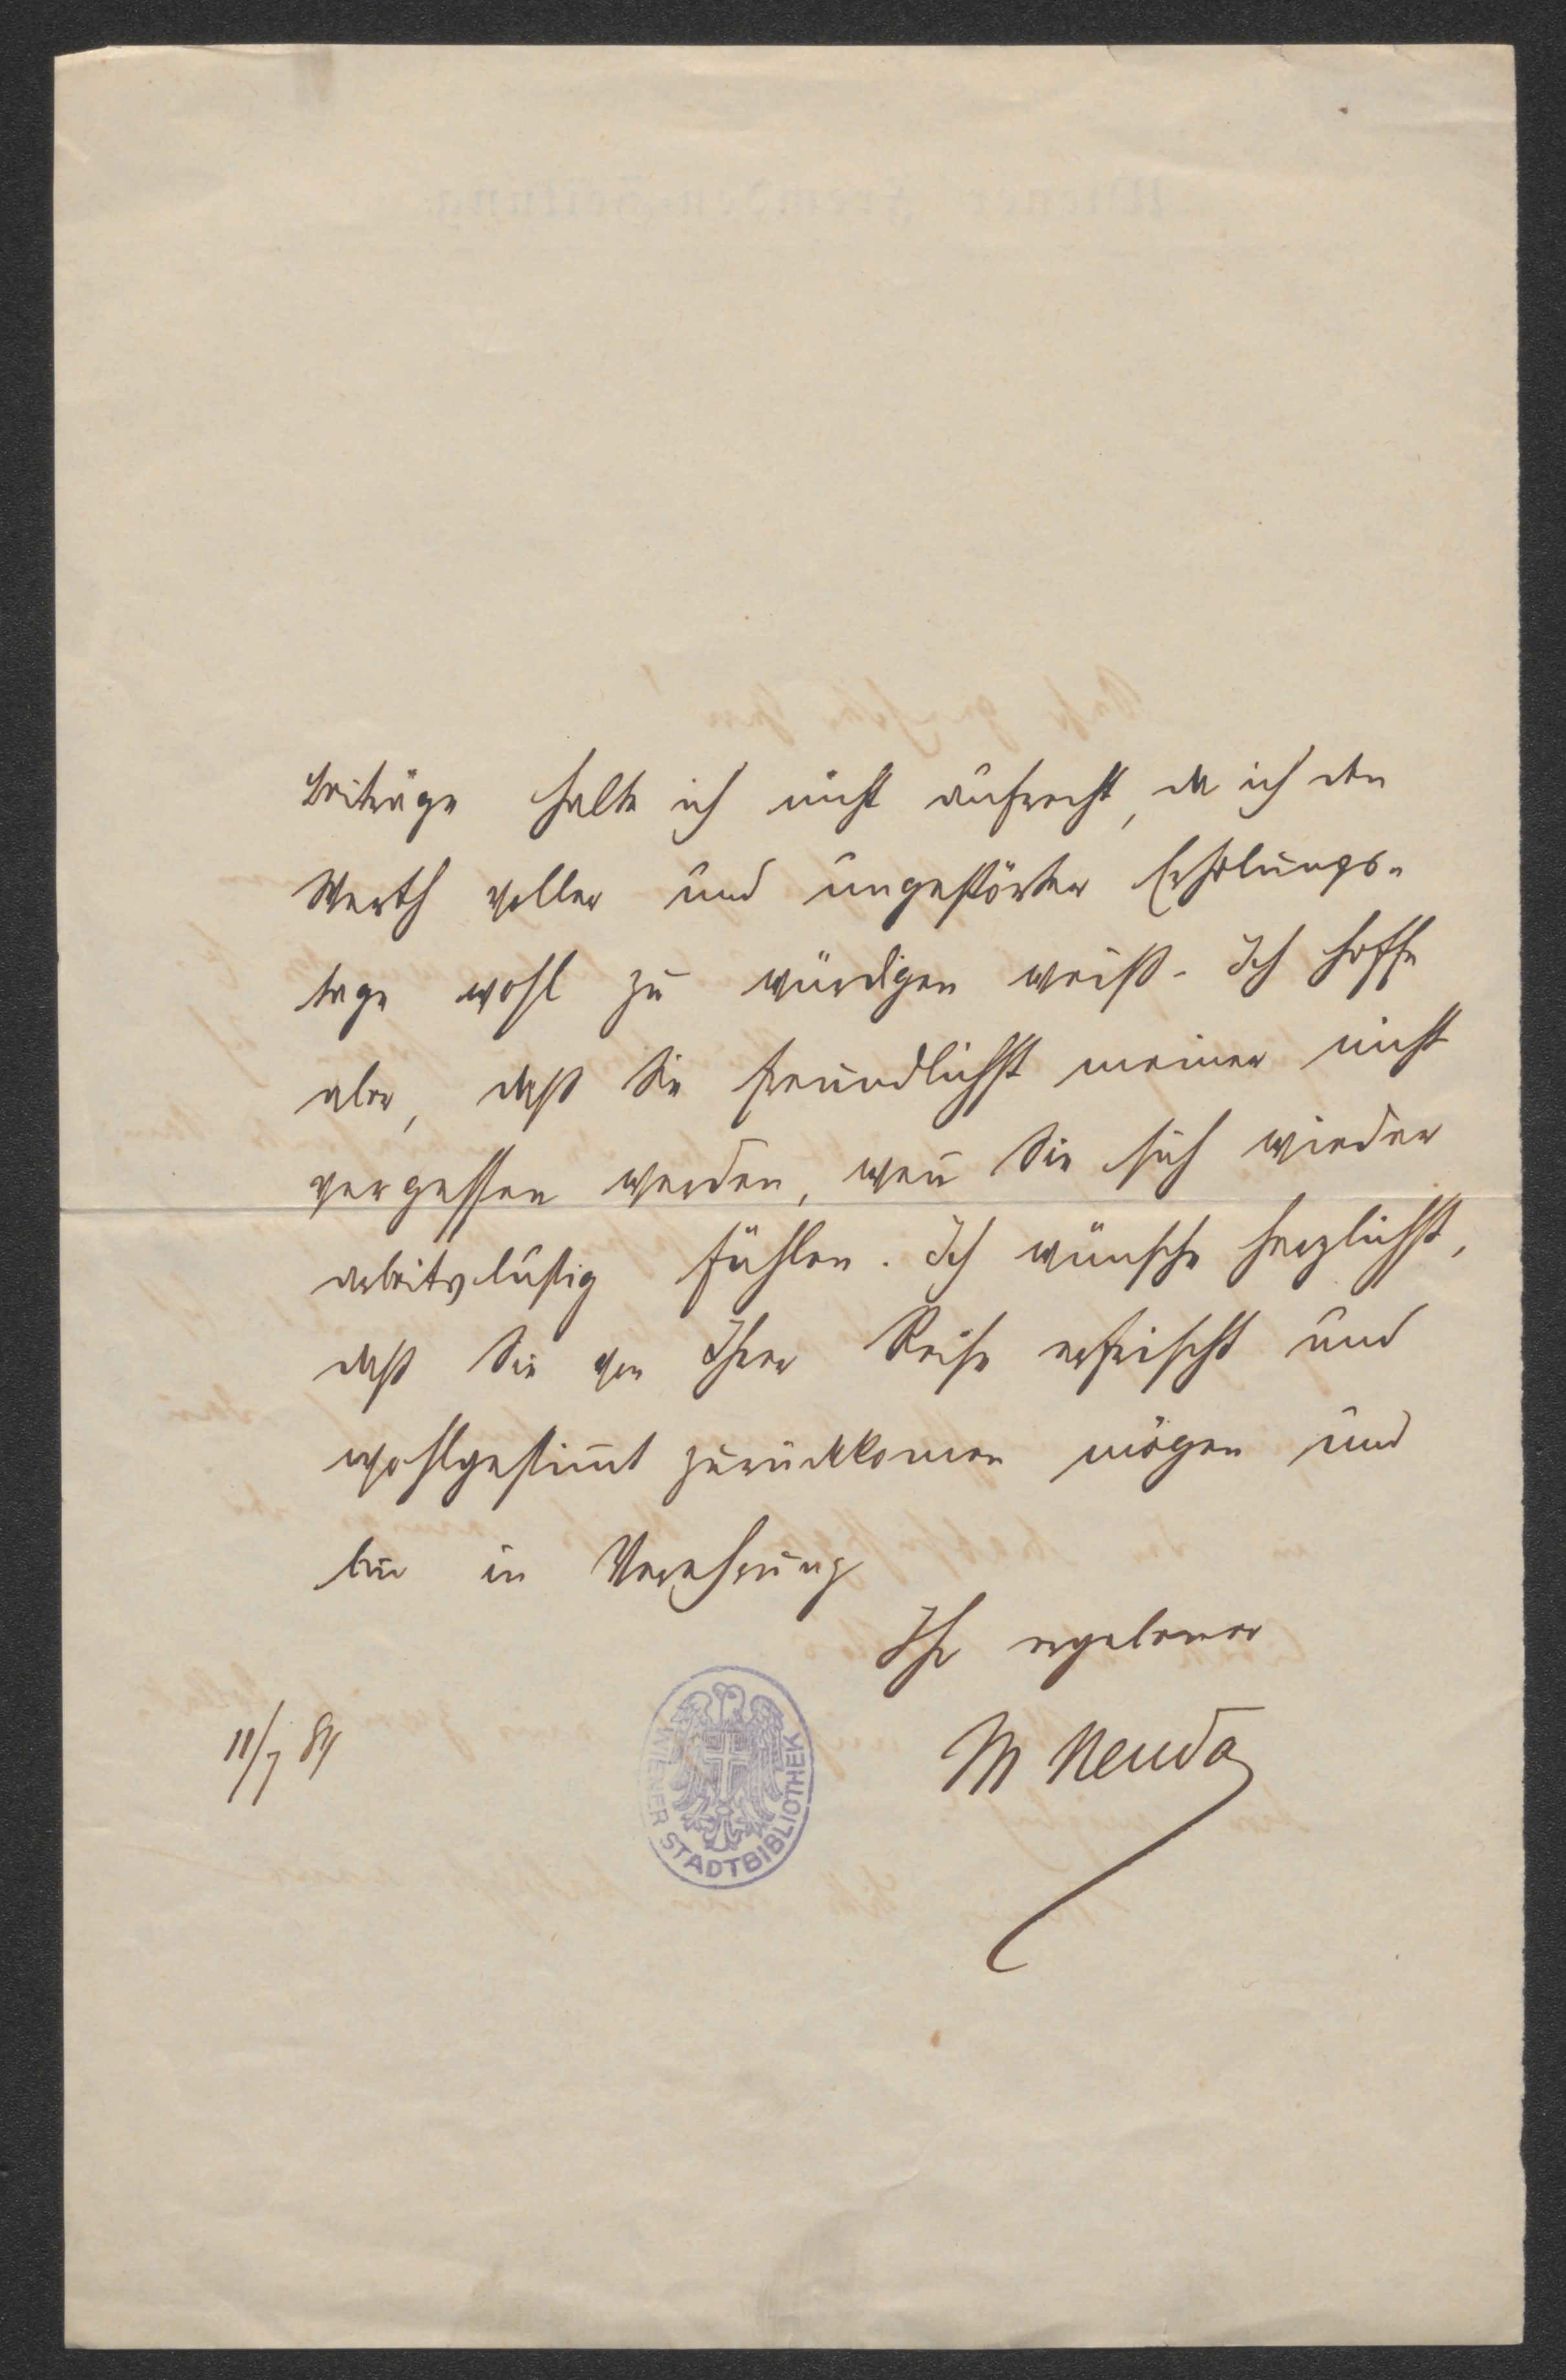 beiträge halte ich nicht aufrecht, da ich den
Werth voller und ungestörter Erholungs-
tage wohl zu würdigen weiß. Ich hoffe
aber, daß Sie freundlichst meiner nicht
vergessen werden, wen̄ Sie sich wieder
arbeitslustig fühlen. Ich wünsche herzlichst,
daß Sie von Ihrer Reise erfrischt und
wohlgestim̄t zurückkom̄en mögen und
bin in Verehrung
Ihr ergebener
M Neuda
11/7 89
WIENER STADTBIBLIOTHEK